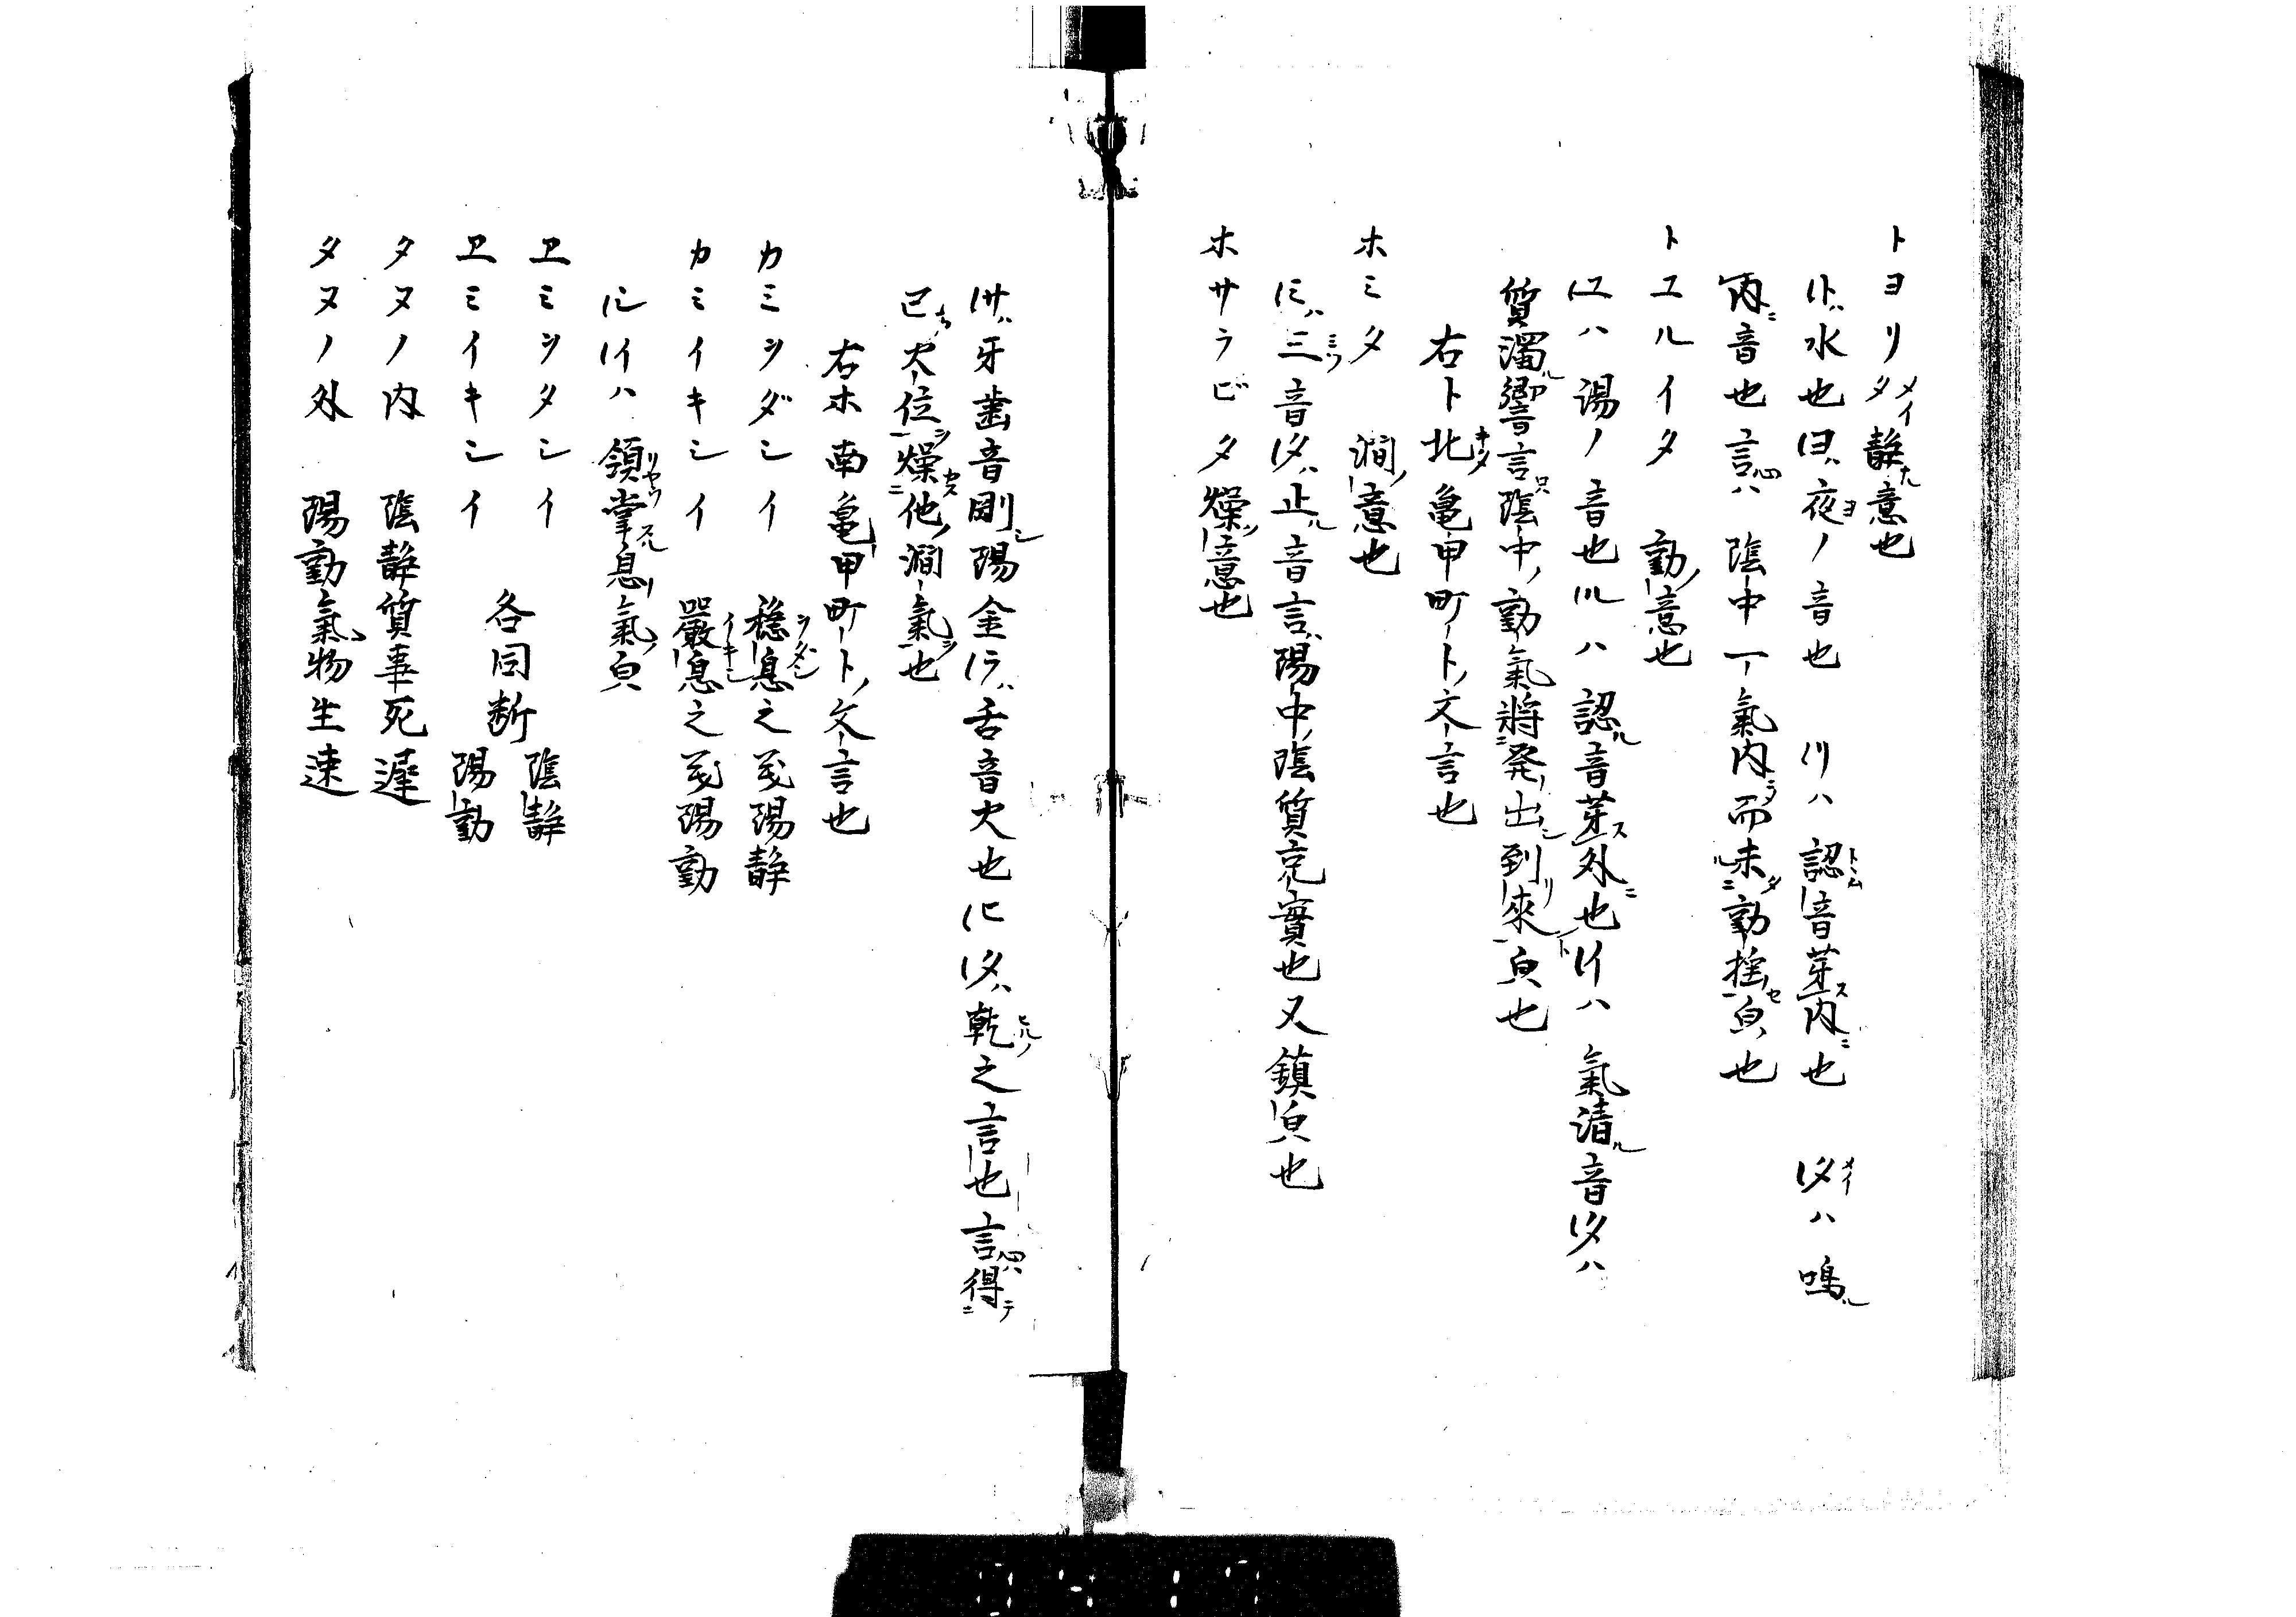 トヨリタメイ 静意也
トハ水也ヨハ夜ノ音也 リハ認音芽内也 タハ鳴
音也言ハ陰中一氣内而未動揺皃也
トユルイタ 動意也
ユハ湯ノ音也ルハ認音芽外也イハ氣清音タハ
質濁響言陰中動氣將発出到來皃也
右ト北亀甲町ト文言也
ホミタ 澗意也
ミハ三音タハ止音言陽中陰質充實也又鎮皃也
ホサラビタ 燥意也
サハ牙歯音剛陽金ラハ舌音火也ヒタハ乾之言也言得
已火位燥他澗氣也
右ホ南亀甲町ト文言也
カミシダシイ 穏息之 陽静
カミイキシイ 嚴息之 陽動
シイハ領掌息氣皃
ヱミシタシイ 陰静
各同断
ヱミイキシイ 陽動
タヌノ内 陰静質事死遅
タヌノ外 陽動氣物生速